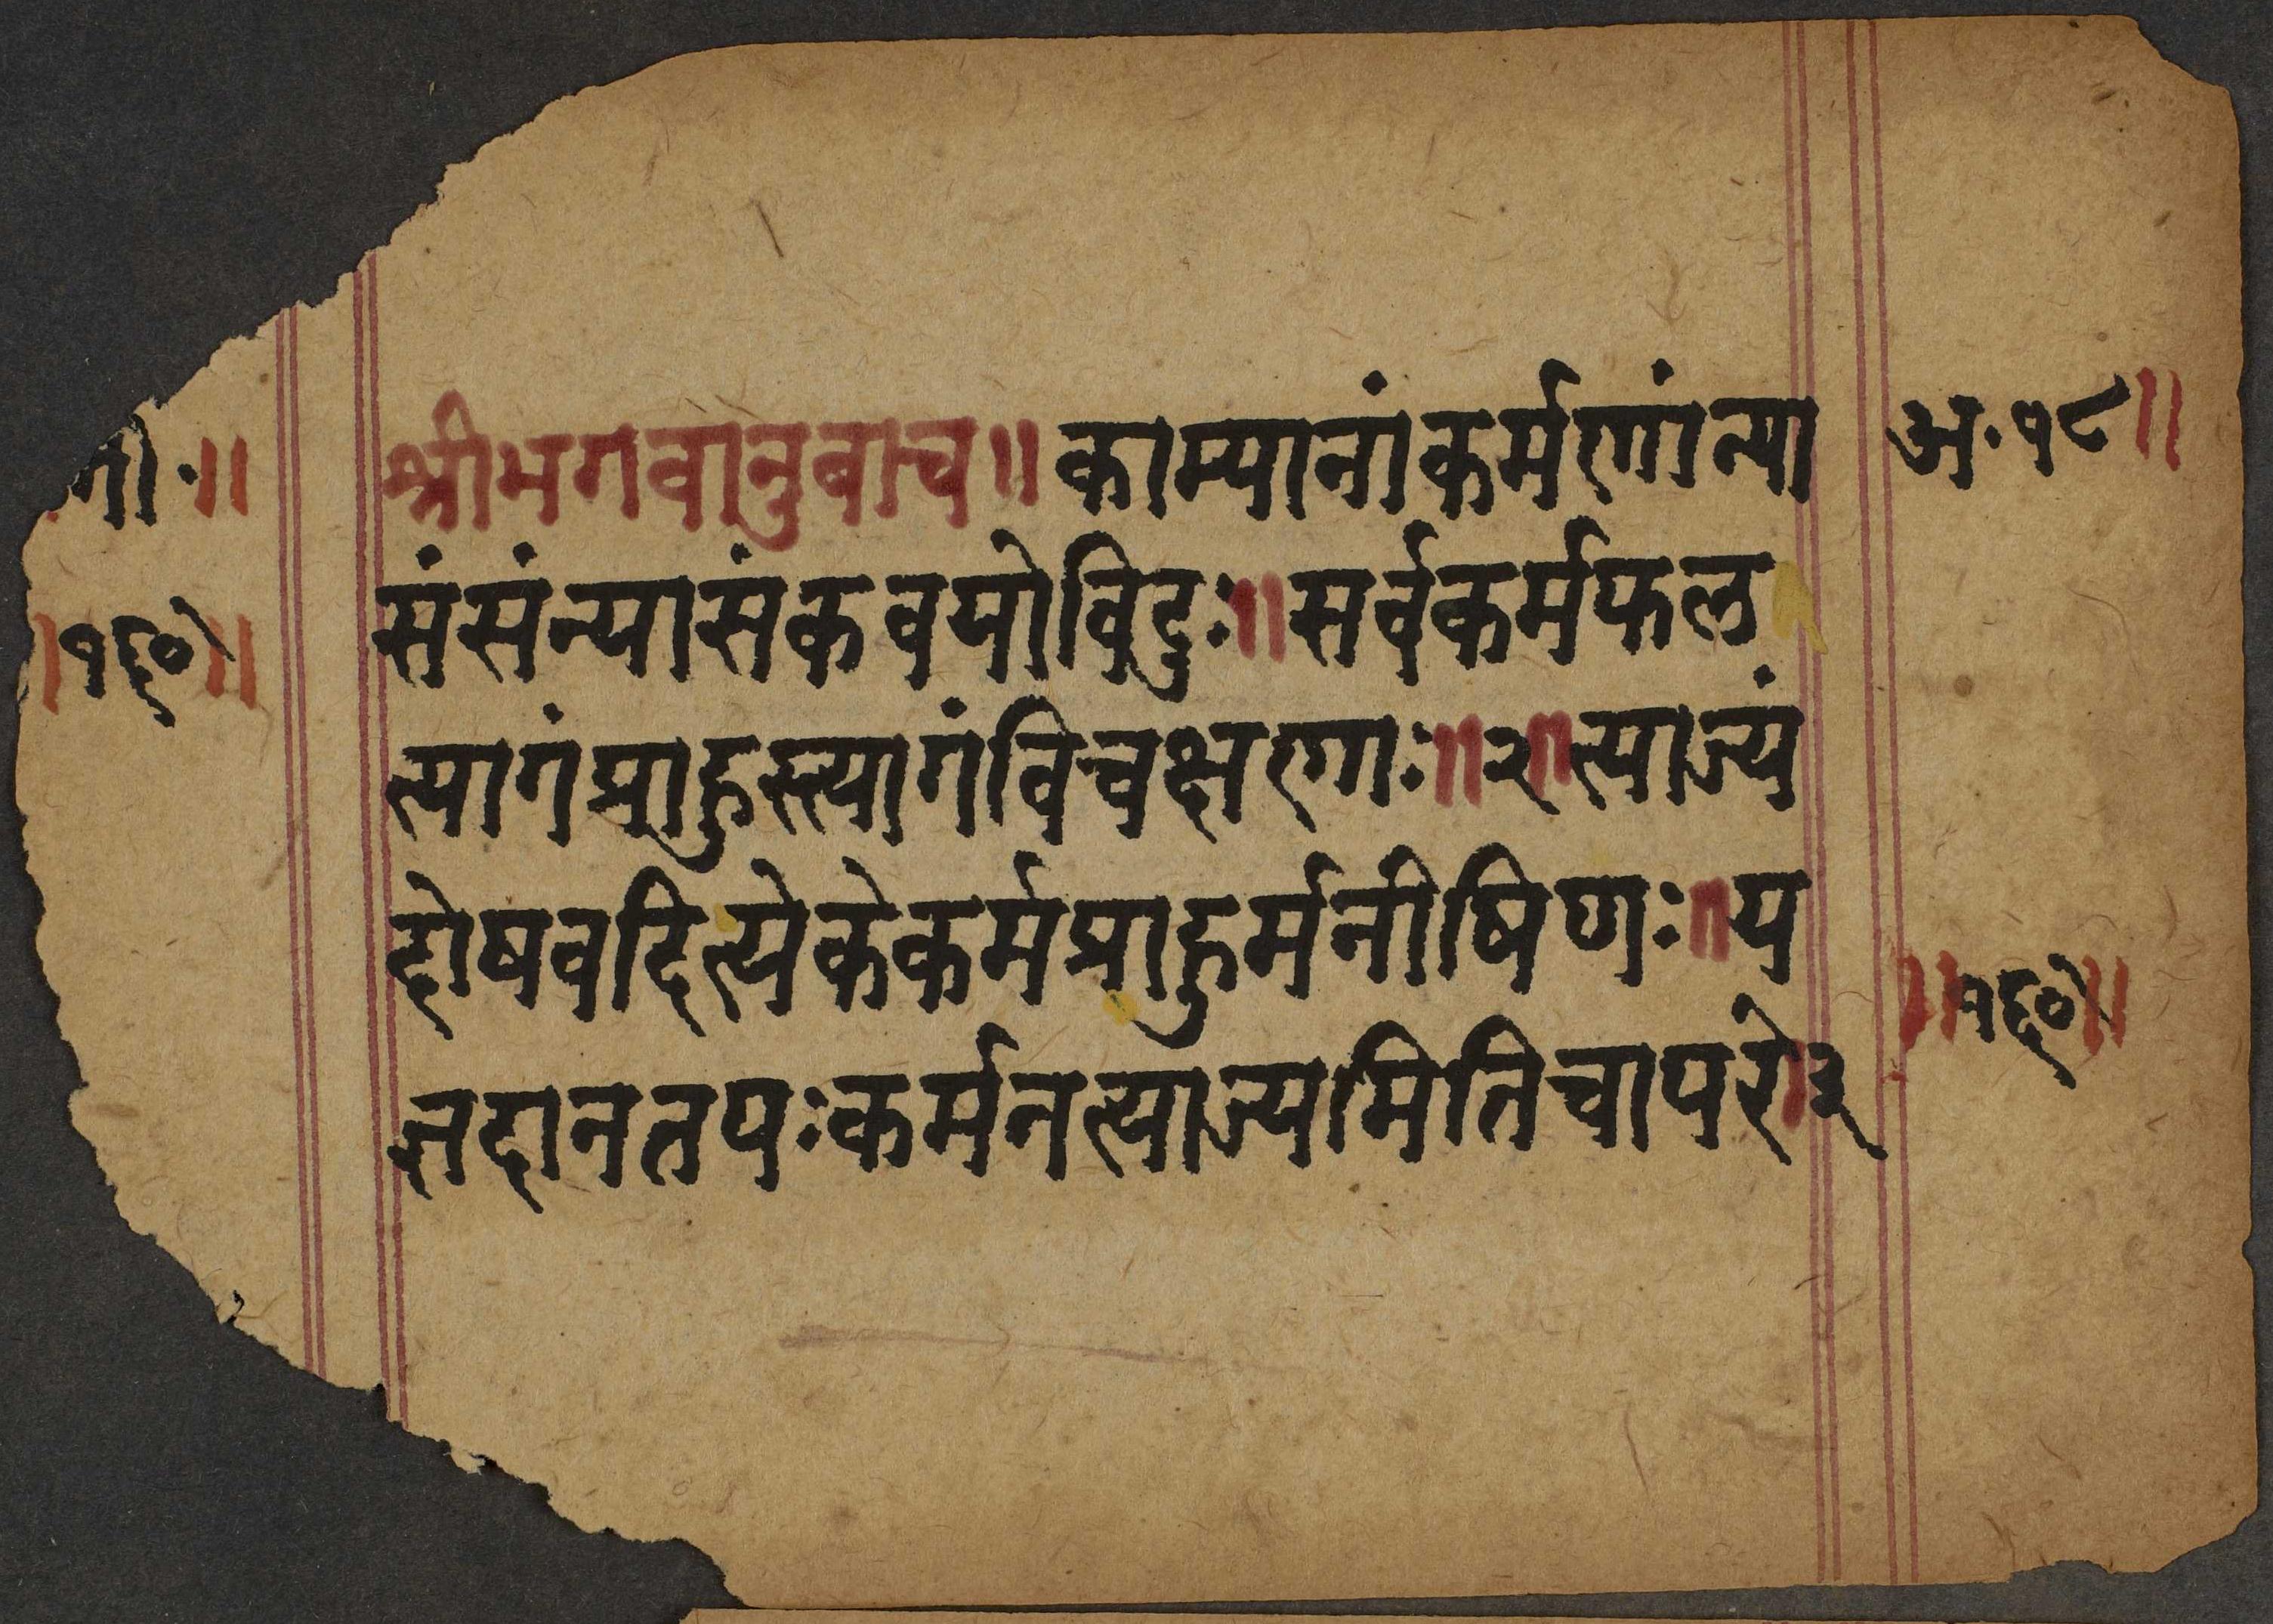 गी॰॥ श्रीभगवानुवाच॥काम्यानांकर्मणांन्या अ॰१८॥
।१६०॥ संसंन्यासंकवयोविदुः॥सर्वकर्मफल
त्यागंप्राहुस्त्यागंविचक्षणाः॥२॥त्याज्यं
दोषवदित्येकेकर्मप्राहुर्मनीषिणः॥य
ज्ञदानतपःकर्मनत्याज्यमितिचापरे।३ ॥१६०॥